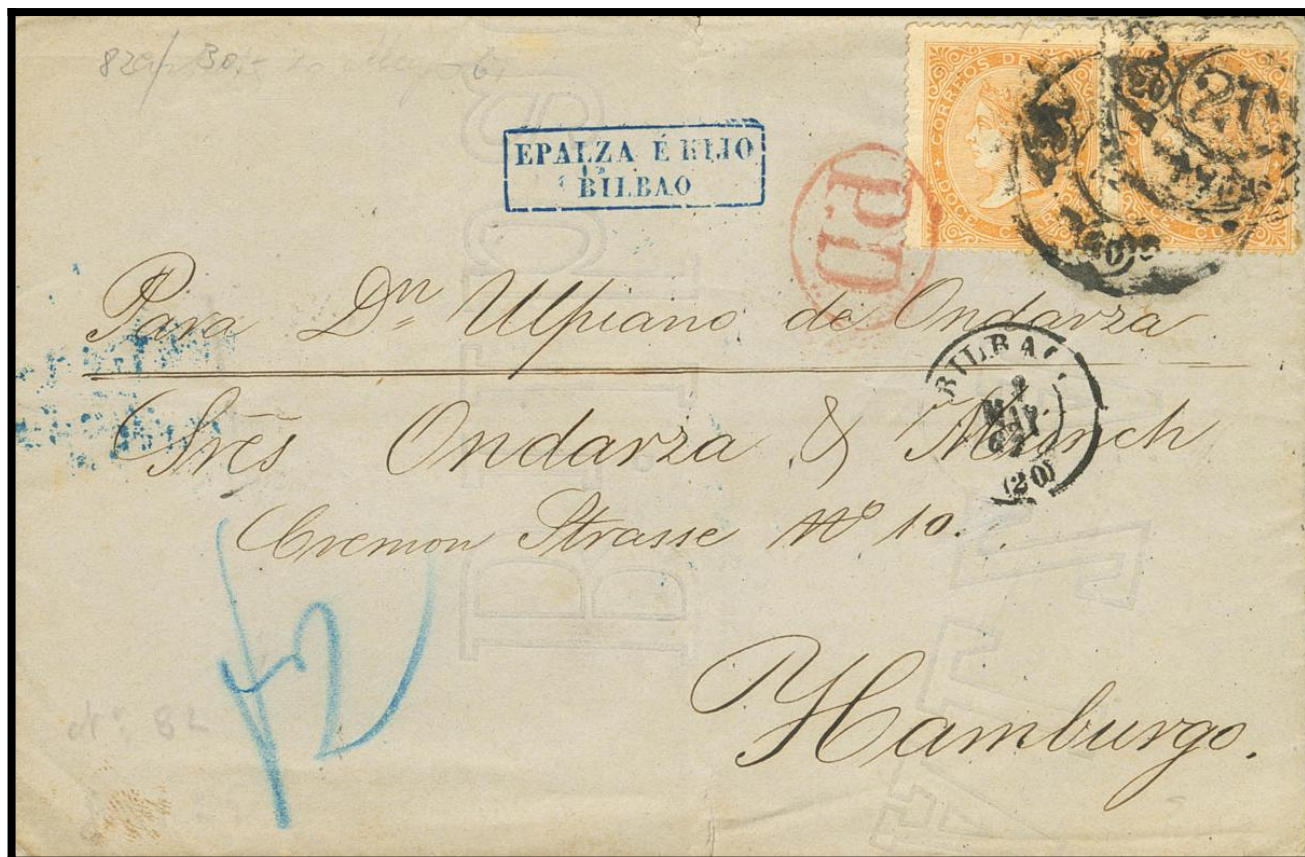 EPALZA É HIJO
BILBAO
CORREOS DE
DOCE CU
27
PD
Para Dn Ulpiano de Ondarza
BILBAO
MAY
(20)
Sres Ondarza & Münch
Cremon Strasse No 10.
42
No. 82
Hamburgo.